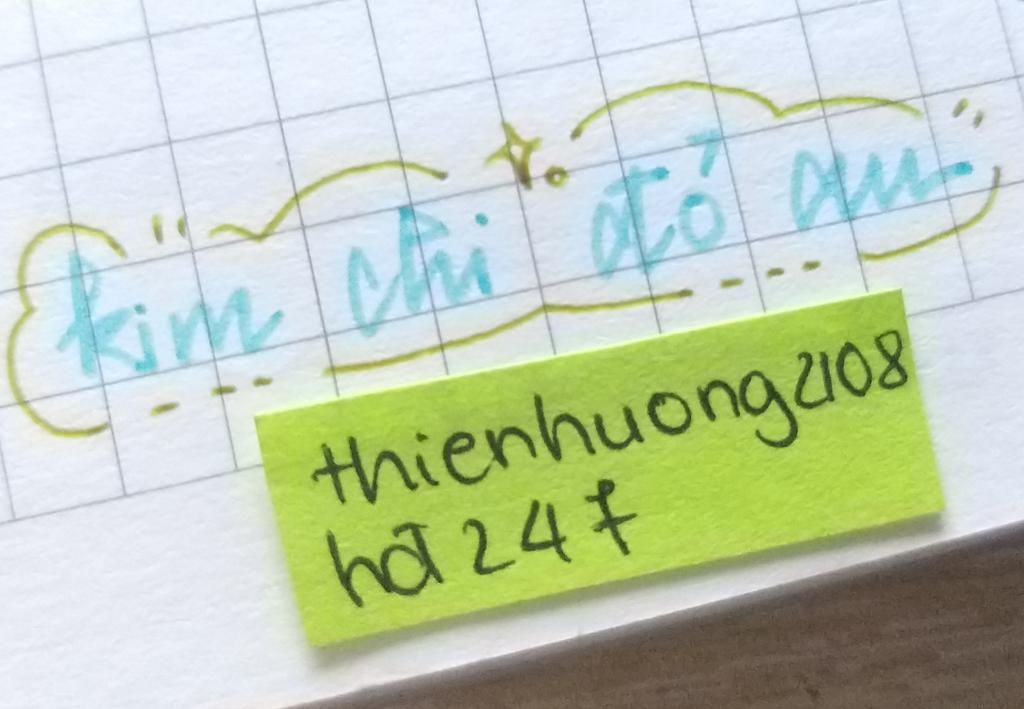 kim chi đỏ au
thienhuong2108
hot 247